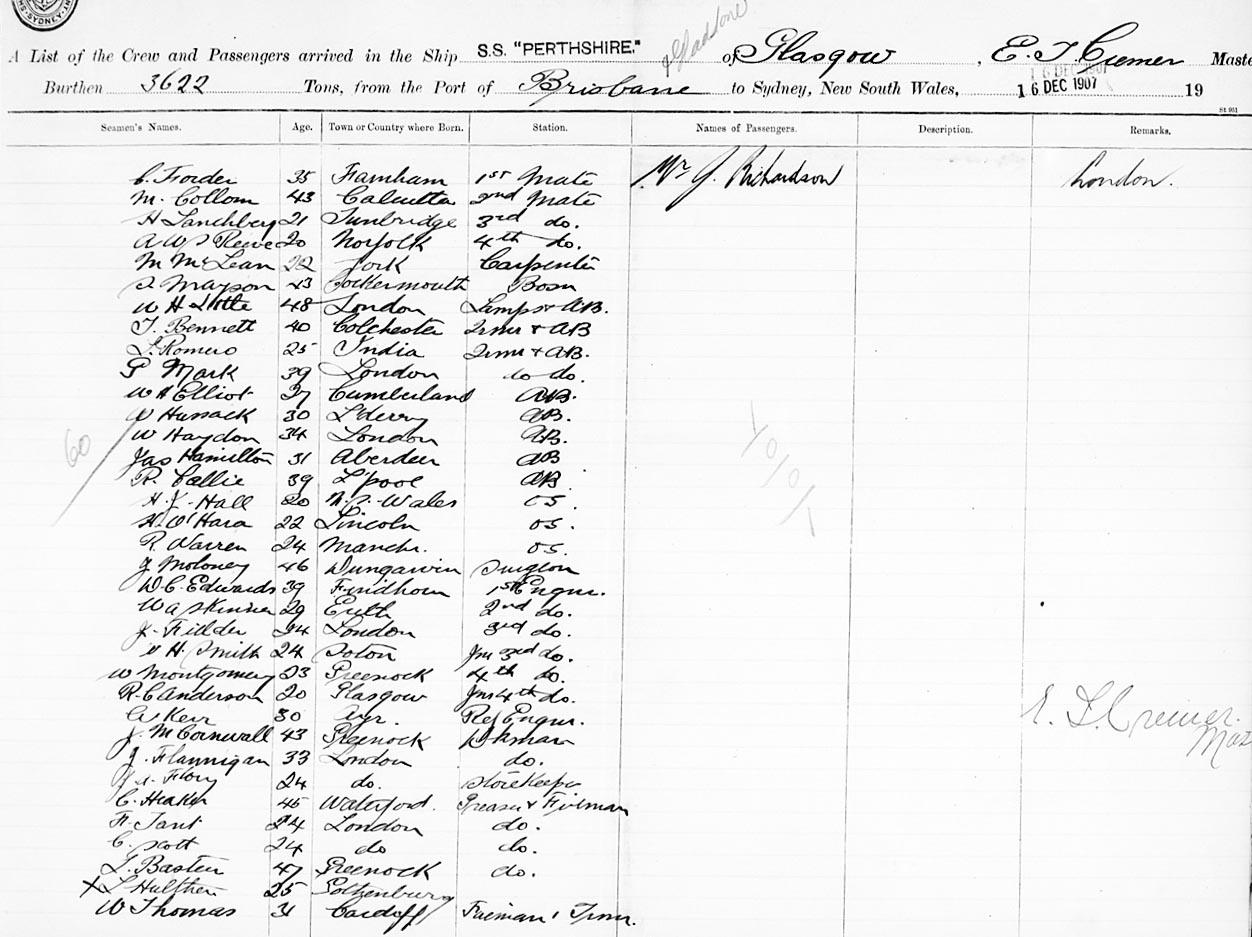 A List of the Crew and Passengers arrived in the Ship S.S. "PERTHSHIRE," & Gladstone of Glasgow, E. T. Cremer Maste
Burthen 3622 Tons, from the Port of Brisbane to Sydney, New South Wales, 16 DEC 1907 19
St 951
Seamen's Names. Age. Town or Country where Born. Station. Names of Passengers. Description. Remarks.
C. Forder 35 Farnham 1st Mate Mr J. Richardson London.
M. Collom 43 Calcutta 2nd Mate
H Lanchbery 21 Tunbridge 3rd do.
A W S Reeve 20 Norfolk 4th do.
M McLean 22 Carpenter
S Mayson 43 Cockermouth Bosn
W H Little 48 London Lamps & AB.
T. Bennett 40 Colchester Qrmr & AB
L. Romero 25 India Qrmr & AB.
P Mark 39 London do do.
W A Elliot 37 Cumberland AB.
W Hussack 30 L'derry AB.
W Haydon 34 London AB.
Jas Hamilton 31 Aberdeen AB
R. Callie 39 L'pool AB.
H. J. Hall 20 N.S. Wales OS.
H. O'Hara 22 Lincoln OS.
R. Warren 24 Manchr. OS.
J Moloney 46 Dungarvin Surgeon
D. C. Edwards 39 Findhorn 1st Engnr.
W A Skinner 29 Erith 2nd do.
J. Fidler 24 London 3rd do.
W H. Smith 24 Soton Jnr 3rd do.
W Montgomery 23 Greenock 4th do.
R. C Anderson 20 Glasgow Jnr 4th do.
Kerr 30 Ayr. Ref Engnr.
J. M Cornwall 43 Greenock Dkman
J. Flannigan 33 London do.
Flory 24 do. Storekeeper
C. Heaken 45 Waterford. Greaser & Fireman
F. Tant 24 London do.
C. Scott 24 do do.
J. Basten 47 Greenock do.
X L Hulthen 25 Gothenburg
W Thomas 31 Cardiff Fireman & Trmr.
60
1/0/0/1
E. T. Cremer.